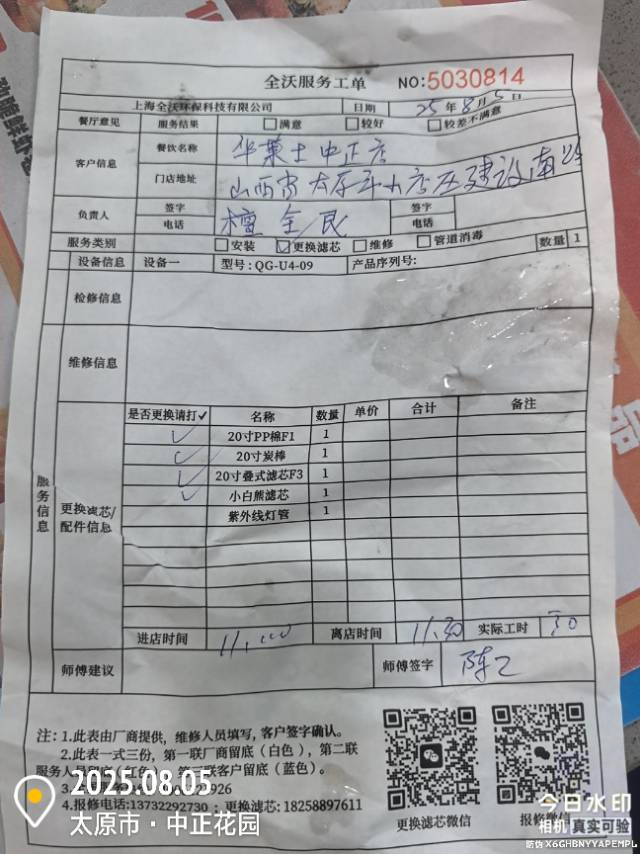 全沃服务工单 NO:5030814
上海全沃环保科技有限公司 日期 25年8月5日
餐厅意见 服务结果 满意 较好 较差不满意
客户信息 餐饮名称 华莱士中正店
门店地址 山西省太原市小店区建设南路
负责人 签字 签字
电话 电话
服务类别 安装 更换滤芯 维修 管道消毒 数量 1
设备信息 设备一 型号: QG-U4-09 产品序列号:
检修信息
维修信息
服务信息
更换滤芯/配件信息
是否更换请打✓ 名称 数量 单价 合计 备注
✓ 20寸PP棉F1 1
✓ 20寸炭棒 1
✓ 20寸叠式滤芯F3 1
✓ 小白熊滤芯 1
紫外线灯管 1
进店时间 11:00 离店时间 11:30 实际工时 30
师傅建议 师傅签字
注: 1.此表由厂商提供，维修人员填写，客户签字确认。
2.此表一式三份，第一联厂商留底（白色），第二联
服务人员留底（红色），第三联客户留底（蓝色）。
4.报修电话:13732292730；更换滤芯:18258897611
更换滤芯微信 报修微信
2025.08.05
太原市·中正花园
今日水印
相机 真实可验
防伪 X6GHBNYYAPEMPL